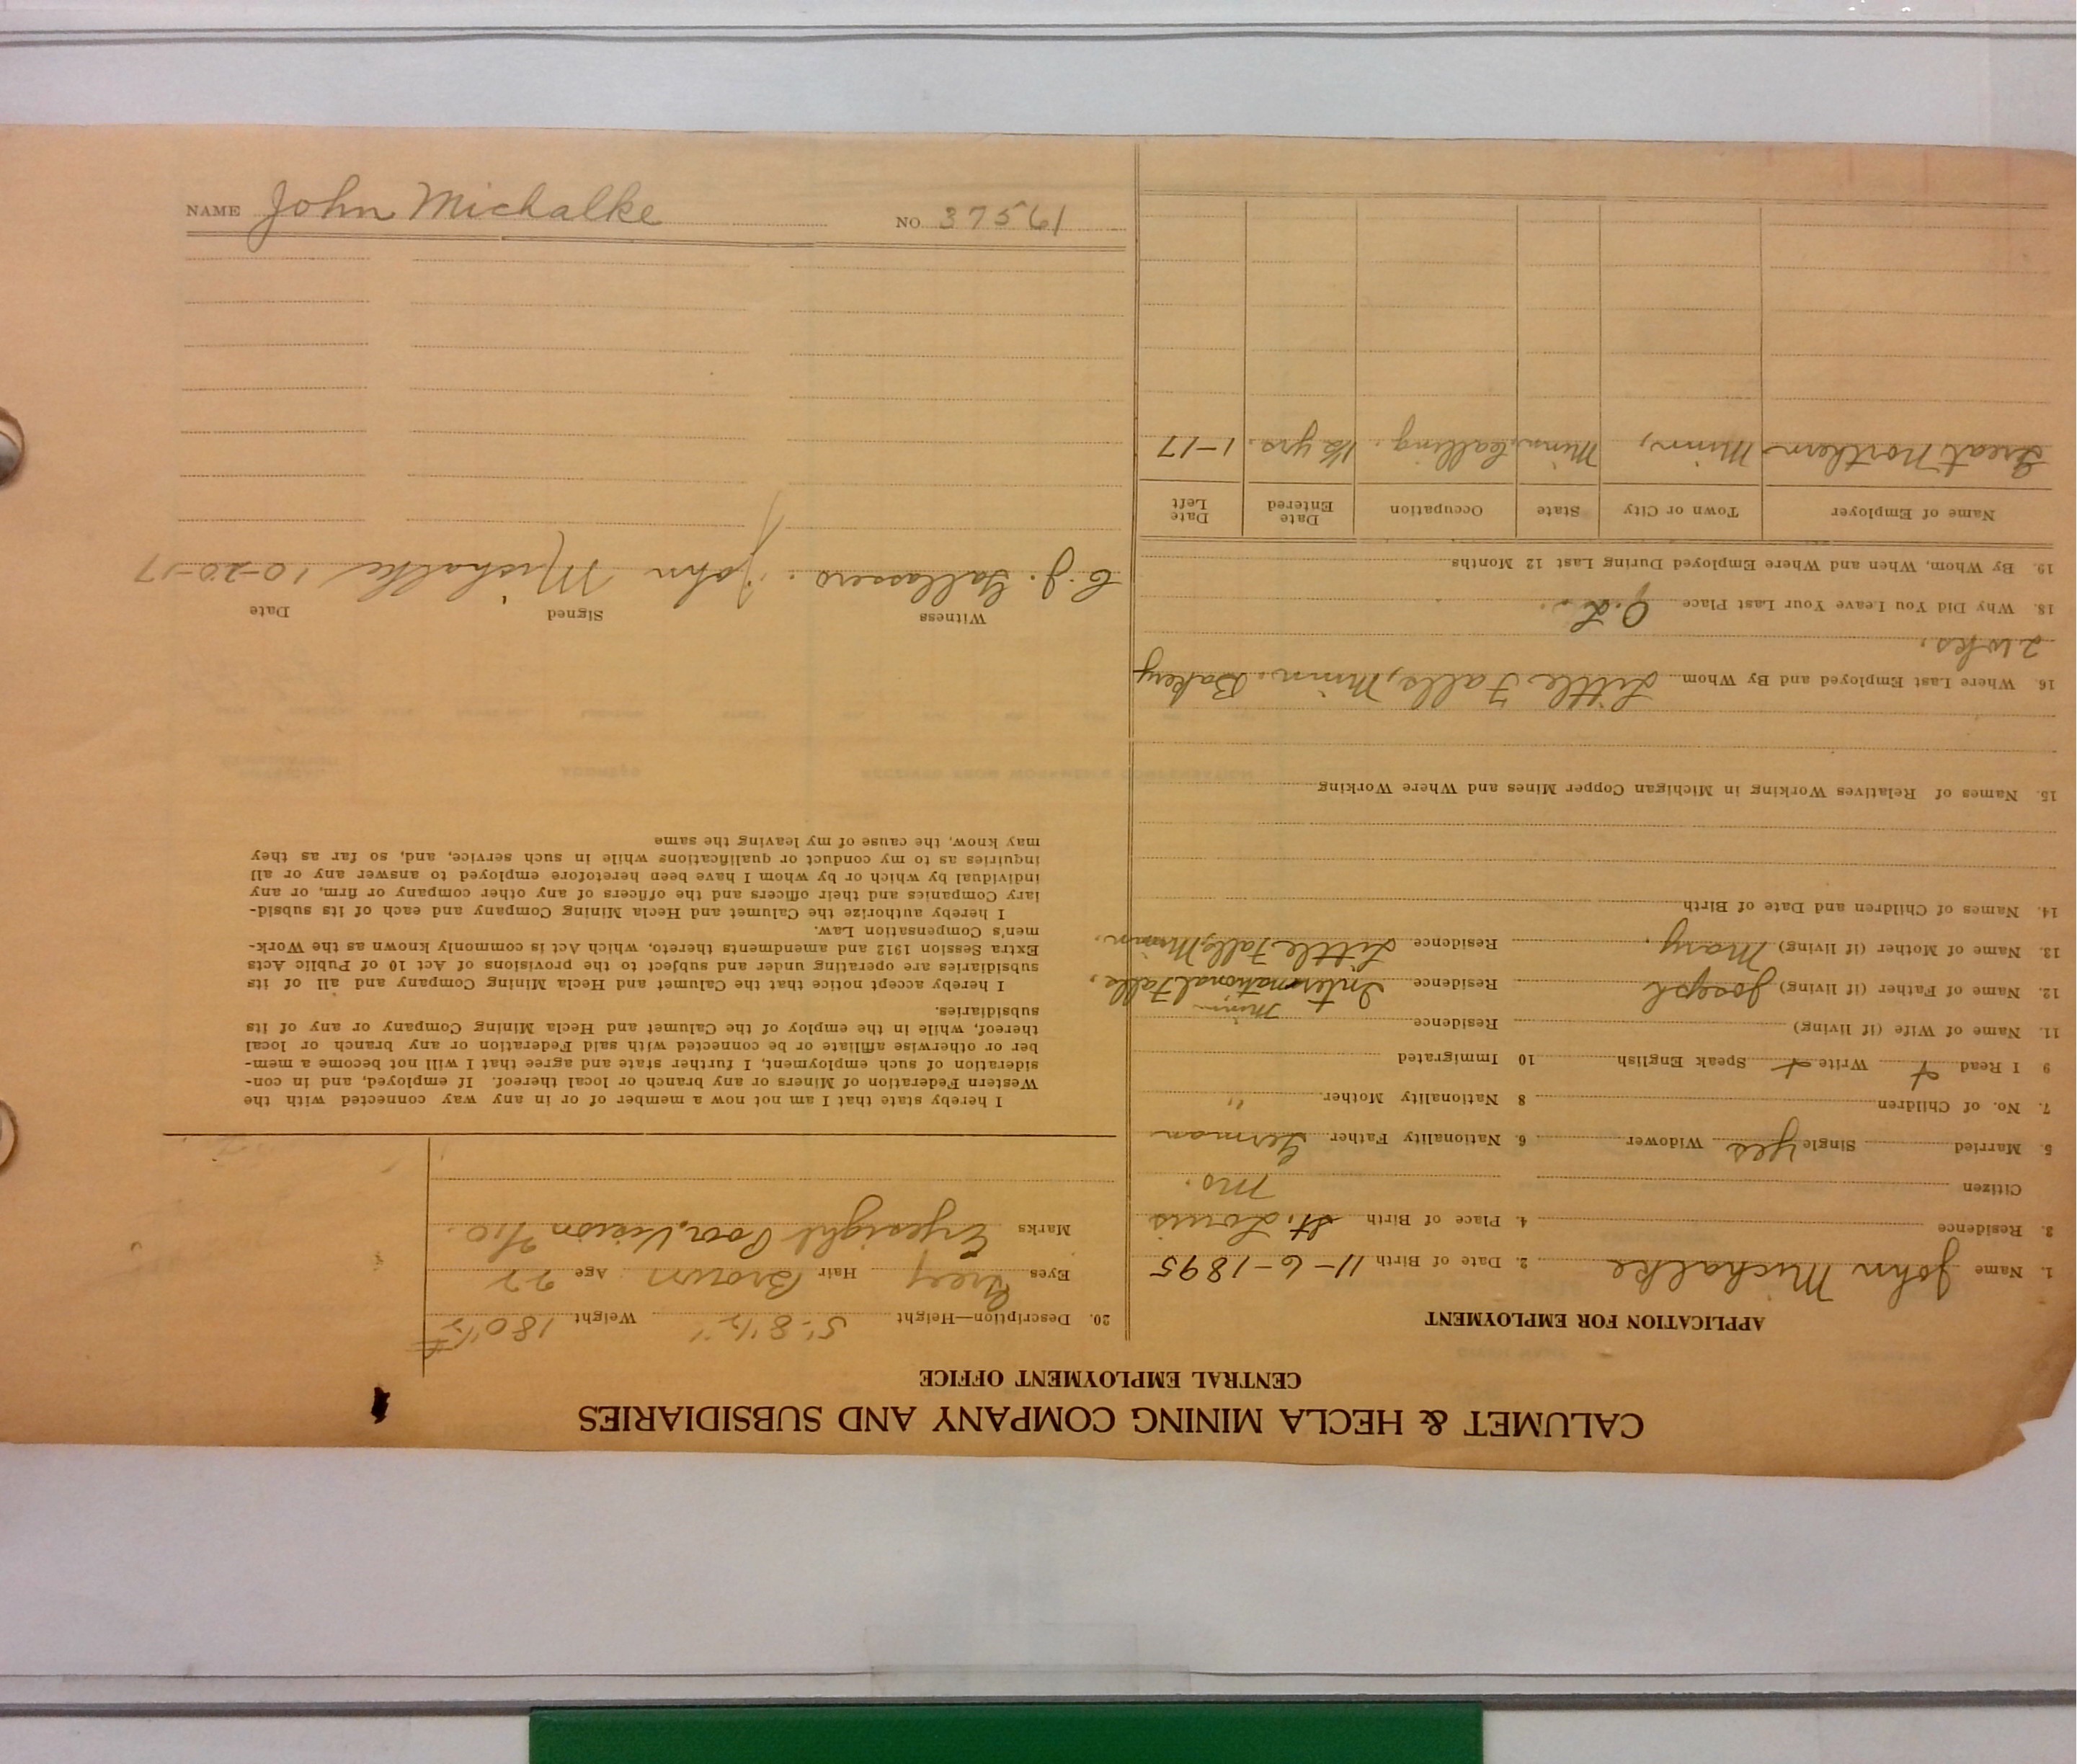 CALUMET & HECLA MINING COMPANY AND SUBSIDIARIES
CENTRAL EMPLOYMENT OFFICE
APPLICATION FOR EMPLOYMENT
1. Name John Michalke 2. Date of Birth 11-6-1895
3. Residence 4. Place of Birth St. Louis
Citizen Mo.
5. Married Single yes Widower 6. Nationality Father German
7. No. of Children 8 Nationality Mother "
9 I Read + Write + Speak English 10 Immigrated
11. Name of Wife (if living) Residence
Minn
12. Name of Father (if living) Joseph Residence International Falls,
13. Name of Mother (if living) Mary, Residence Little Falls, Minn.
14. Names of Children and Date of Birth
15. Names of Relatives Working in Michigan Copper Mines and Where Working
16. Where Last Employed and By Whom Little Falls, Minn. Bakery
2 wks.
18. Why Did You Leave Your Last Place
19. By Whom, When and Where Employed During Last 12 Months
Name of Employer Town or City State Occupation Date Entered Date Left
Great Northern Minn, Minn. Calling. 1½ yrs. 1-17
20. Description—Height 5'-8½" Weight 180½#
Eyes Grey Hair Brown Age 22
Marks Eyesight Poor, Vision /10.
I hereby state that I am not now a member of or in any way connected with the
Western Federation of Miners or any branch or local thereof. If employed, and in con-
sideration of such employment, I further state and agree that I will not become a mem-
ber or otherwise affiliate or be connected with said Federation or any branch or local
thereof, while in the employ of the Calumet and Hecla Mining Company or any of its
subsidiaries.
I hereby accept notice that the Calumet and Hecla Mining Company and all of its
subsidiaries are operating under and subject to the provisions of Act 10 of Public Acts
Extra Session 1912 and amendments thereto, which Act is commonly known as the Work-
men's Compensation Law.
I hereby authorize the Calumet and Hecla Mining Company and each of its subsid-
iary Companies and their officers and the officers of any other company or firm, or any
individual by which or by whom I have been heretofore employed to answer any or all
inquiries as to my conduct or qualifications while in such service, and, so far as they
may know, the cause of my leaving the same
Witness Signed Date
C. J. John Michalke 10-20-17
NAME John Michalke NO. 37561